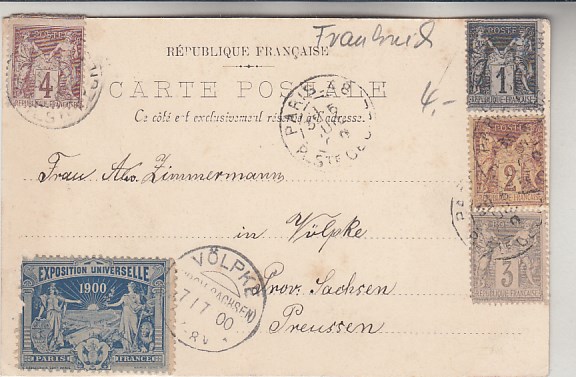 Frankreich
4,-
POSTE
4
RÉPUBLIQUE FRANÇAISE
CARTE POSTALE
Ce côté est exclusivement réservé à l'adresse.
POSTE
1
REPUBLIQUE FRANÇAISE
PARIS
2
3
Frau Aw. Zimmermann
in Völpke
Prov. Sachsen
Preussen
VÖLPKE
SACHSEN)
17 00
EXPOSITION UNIVERSELLE
1900
PARIS FRANCE